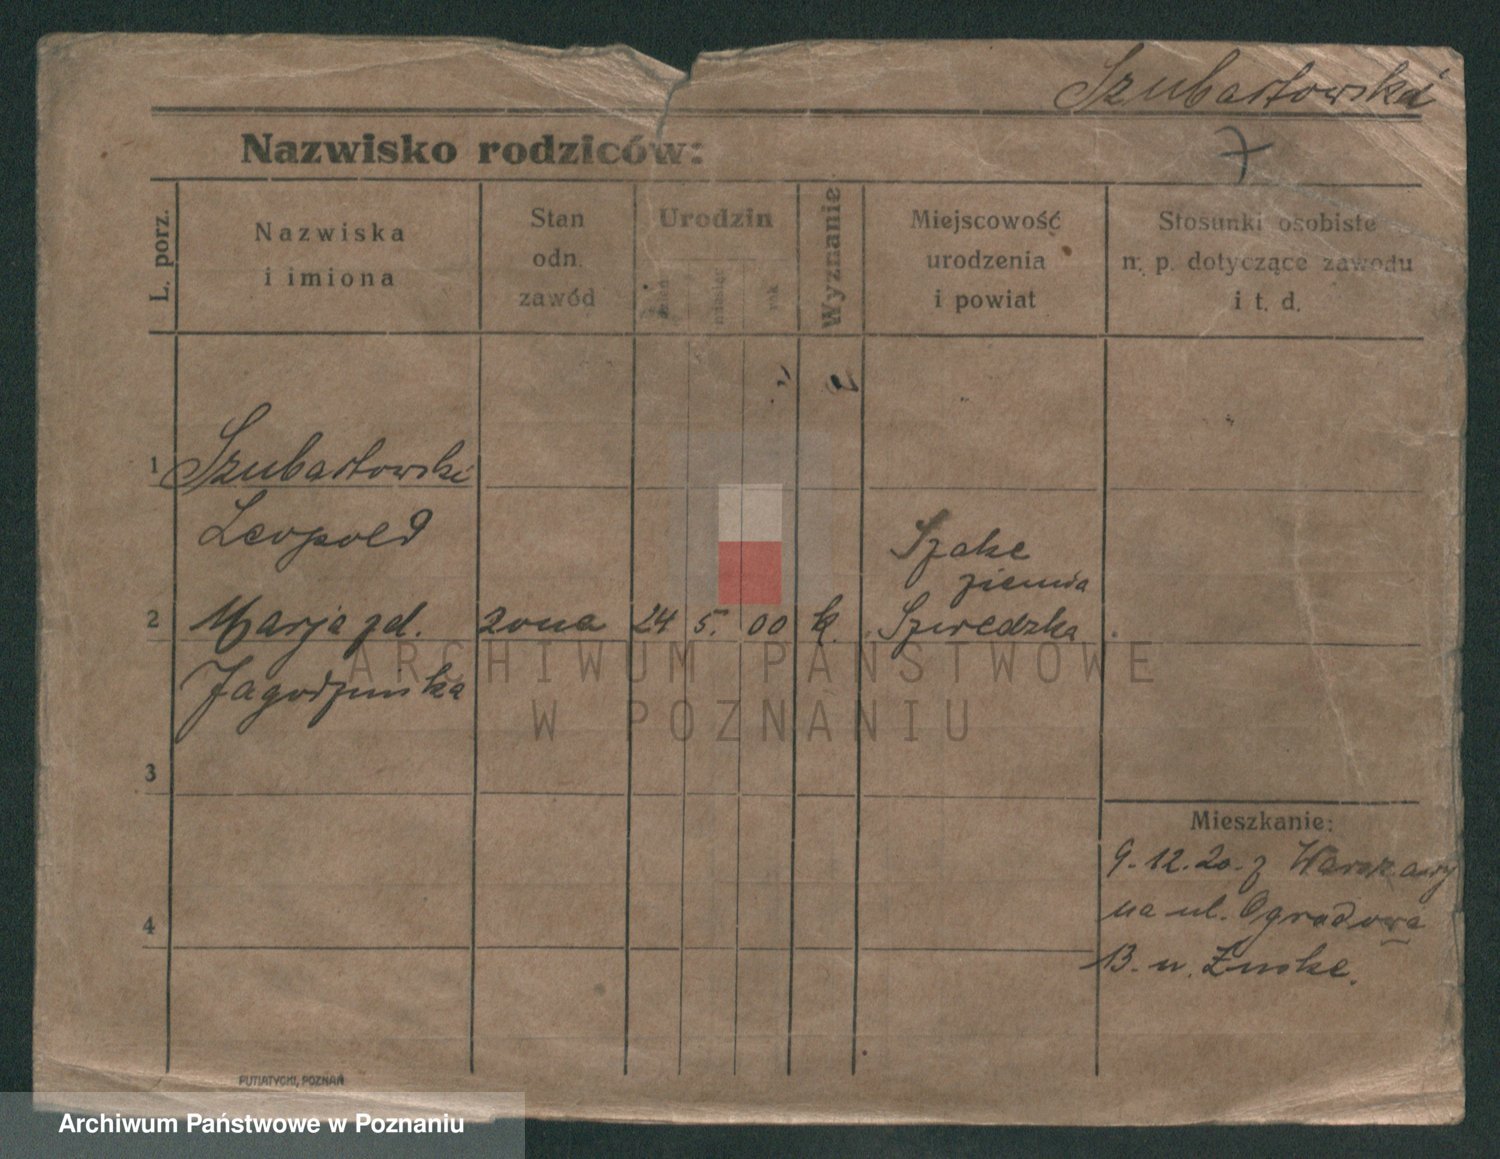 Szubartowski
Nazwisko rodziców:
L. porz.
Nazwiska
i imiona
Stan
odn.
zawód
Urodzin
dzień
miesiąc
rok
Wyznanie
Miejscowość
urodzenia
i powiat
Stosunki osobiste
n. p. dotyczące zawodu
i t. d.
1 Szubartowski
Leopold
2 Marja zd. żona 24 5. 00 k.
Jagodzinska
ziemia
Szwedzka
3
4
Mieszkanie:
9. 12. 20. z Warszawy
na ul. Ogrodowa
13. u.
PUTIATYCKI, POZNAŃ
ARCHIWUM PAŃSTWOWE
W POZNANIU
Archiwum Państwowe w Poznaniu